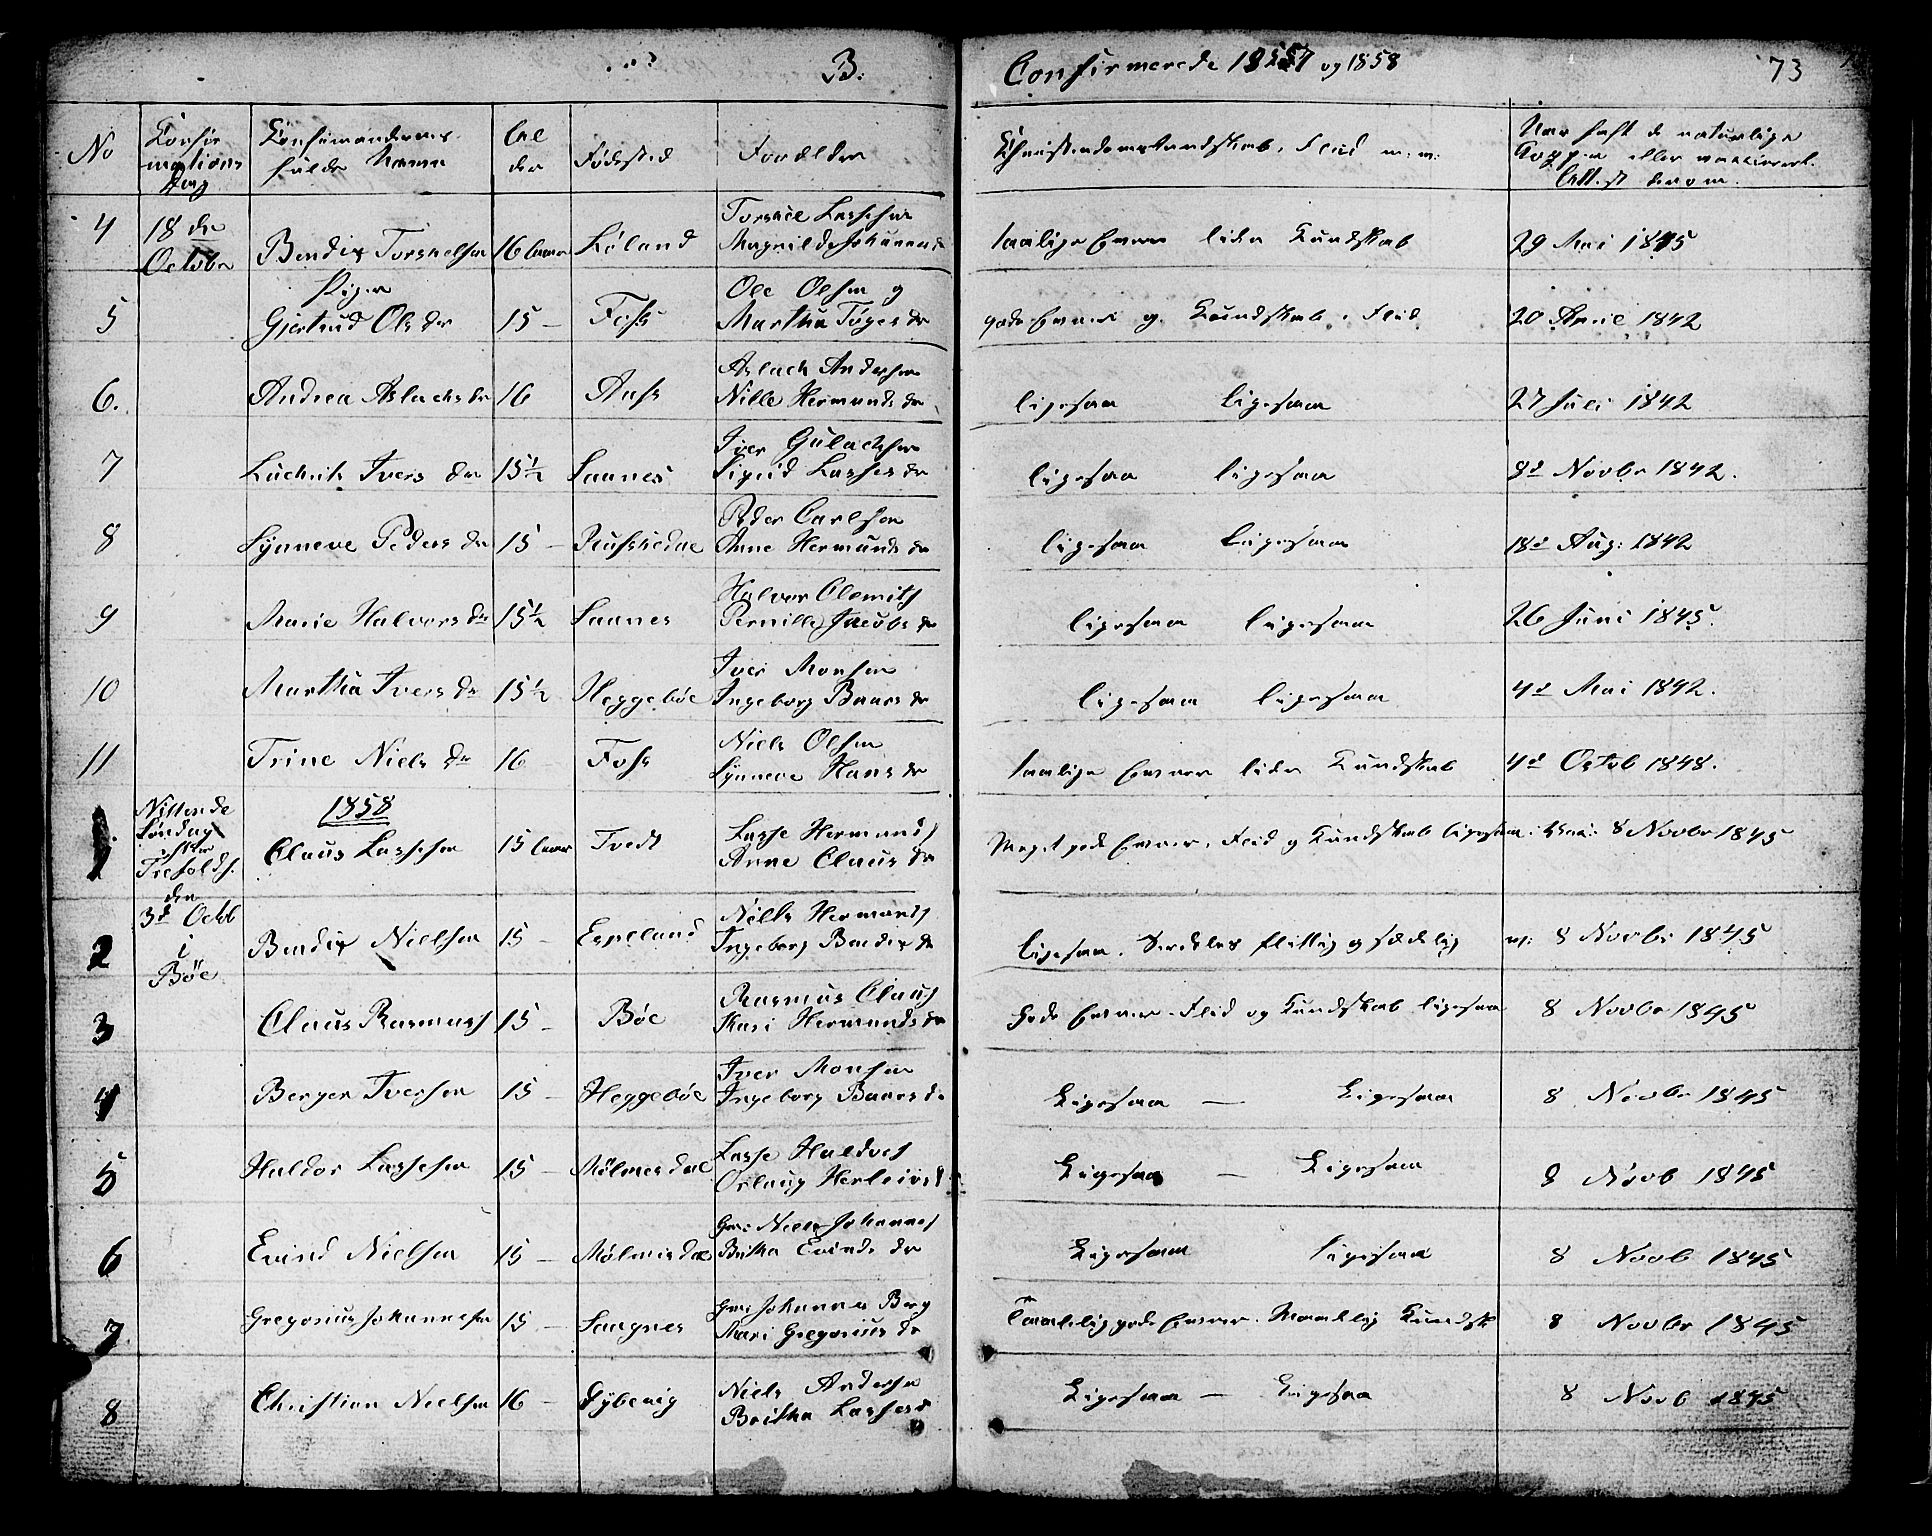 B. Confirmerede 1857 og 1858 73
No Konfirmations Dag Konfirmandernes fulde Navn Alder Fødested Forældre Christendomskundskab, Flid m: m: Naar havt de naturlige Kopper eller vaccineret. Attest derom.
4 18de October Bendix Torkelsen 16 Aar Løland Torkiel Lassesen
Magnilde Johannesdr taalige Evner liden Kundskab 29 Mai 1845
Piger
5 Gjertrud Olsdr 15 - Foss Ole Olsen og
Martha Tøgersdr gode Evner og Kundskab, Flid 20 April 1842
6. Andrea Aslachsdr 16 Aase Aslach Andersen
Nille Hermundsdr ligesaa ligesaa 27 Juli 1842
7 Ludvik Iversdr 15½ Saanes Iver Gulachsen
Sigrid Lassesdr ligesaa ligesaa 8d Novbr 1842.
8 Synneve Pedersdr 15 - Peder Carlsen
Anne Hermundsdr ligesaa ligesaa 18d Aug: 1842
9 Marie Halvorsdr 15½ Saanes Halvor
Pernille Jacobsdr ligesaa ligesaa 26 Juni 1845.
10 Martha Iversdr 15½ Heggebøe Iver Monsen
Ingeborg Baarsdr ligesaa ligesaa 4d Mai 1842.
11 Trine Nielsdr 16 - Foss Niels Olsen
Synneve Hansdr taalige Evner liden Kundskab 4d Octob 1848.
1858
1 Nittende Søndag efter Trefoldh. den 3d Octb i Bøe Claus Lassesen 15 Aar Tvedt Lasse Hermunds
Anne Clausdr Meget gode Evner, Flid og Kundskab ligesaa 8 Novbr 1845
2 Bendix Nielsen 15 - Espeland Niels Hermunds
Ingeborg Bendixdr ligesaa. Særdeles flittig og sædelig 8 Novbr 1845
3 Claus Rasmuss 15 - Bøe Rasmus Claus
Kari Hermundsdr Gode Evner. Flid og Kundskab ligesaa 8 Novbr 1845
4 Berger Iversen 15 - Heggebøe Iver Monsen
Ingeborg Baarsdr Ligesaa - Ligesaa 8 Novbr 1845
5 Haldor Lassesen 15 - Mølmesdal Lasse Haldors
Oslaug Herleivs Ligesaa - Ligesaa 8 Novb 1845
6 Eivind Nielsen 15 - Mølmesdal Gm: Niels Johannes
Britha Eivindsdr Ligesaa ligesaa 8 Novb 1845
7 Gregorius Johannesen 15 - Saugnes Gm: Johannes Berg
Mari Gregoriusdr Taalelig gode Evner. Maadelig Kundsk 8 Novbr 1845
8 Christian Nielsen 16 - Dybevig Niels Andersen
Britha Lassesd Ligesaa - Ligesaa 8 Novb 1845